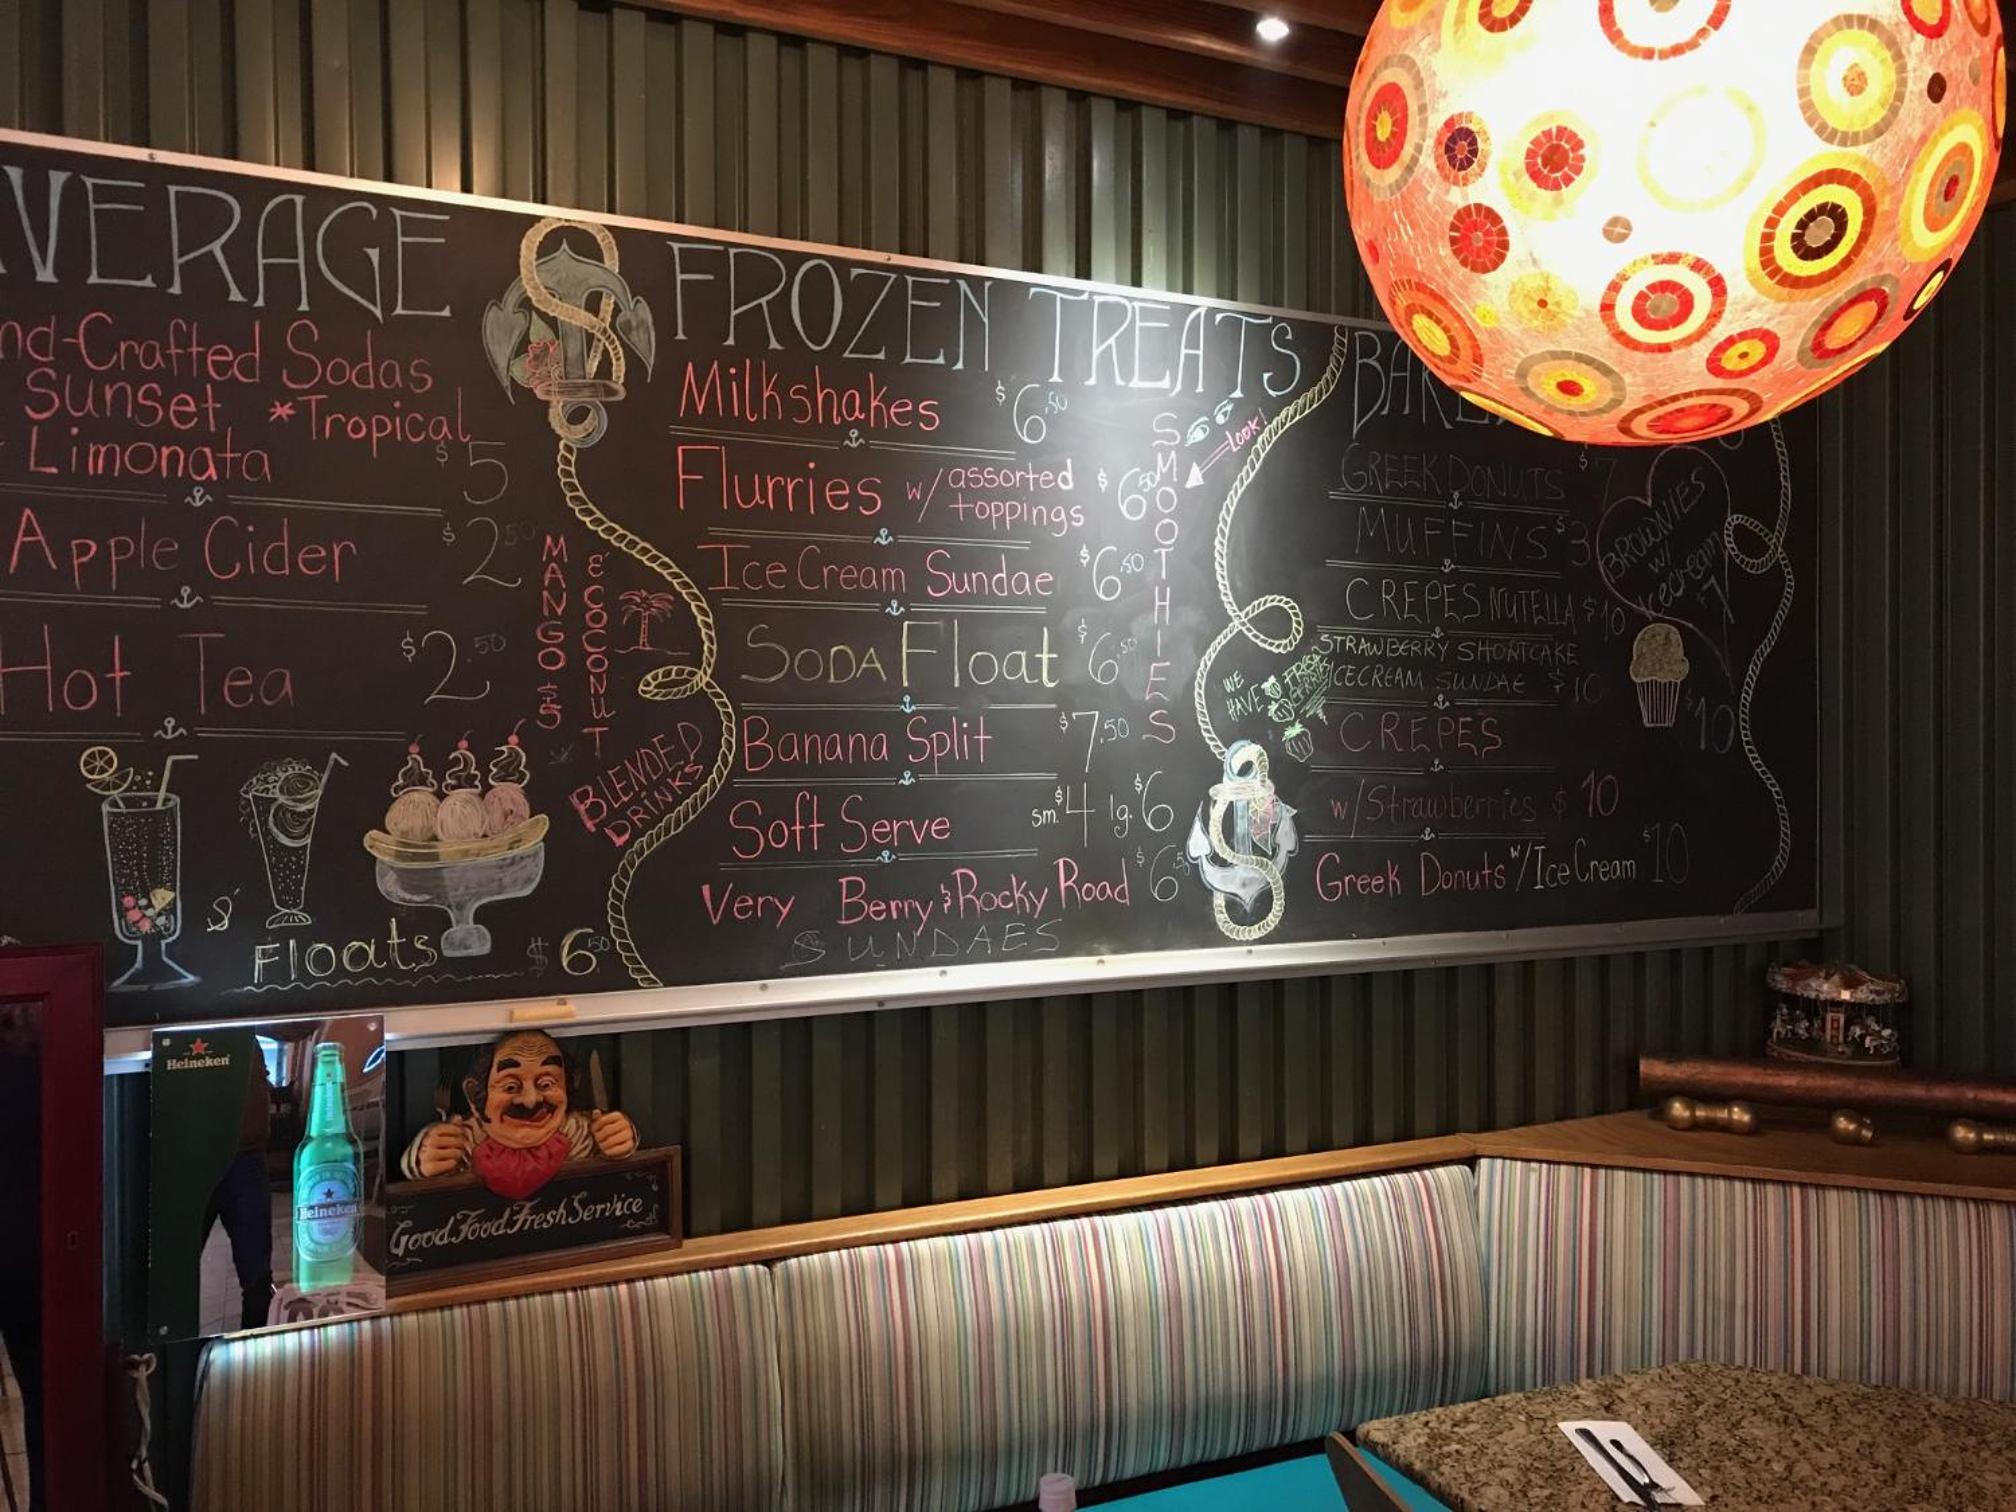 VERAGE
nd-Crafted Sodas
Sunset *Tropical
Limonata $5
Apple Cider $2.50
Hot Tea $2.50
MANGO $5
& COCONUT
BLENDED
DRINKS
Floats $6.50
FROZEN TREATS
Milkshakes $6.50
Flurries w/ assorted
toppings $6.50
Ice Cream Sundae $6.50
SODA Float $6.50
Banana Split $7.50
Soft Serve sm. $4 lg. $6
Very Berry & Rocky Road $6.5
SUNDAES
SMOOTHIES
Look!
WE
HAVE
FRESH
BERRIES
GREEK DONUTS $7
MUFFINS $3
CREPES NUTELLA $10
STRAWBERRY SHORTCAKE
ICECREAM SUNDAE $10
CREPES $10
w/Strawberries $10
Greek Donuts w/Ice Cream $10
BROWNIES
w/
Icecream
$7
Heineken
Heineken
Good Food Fresh Service